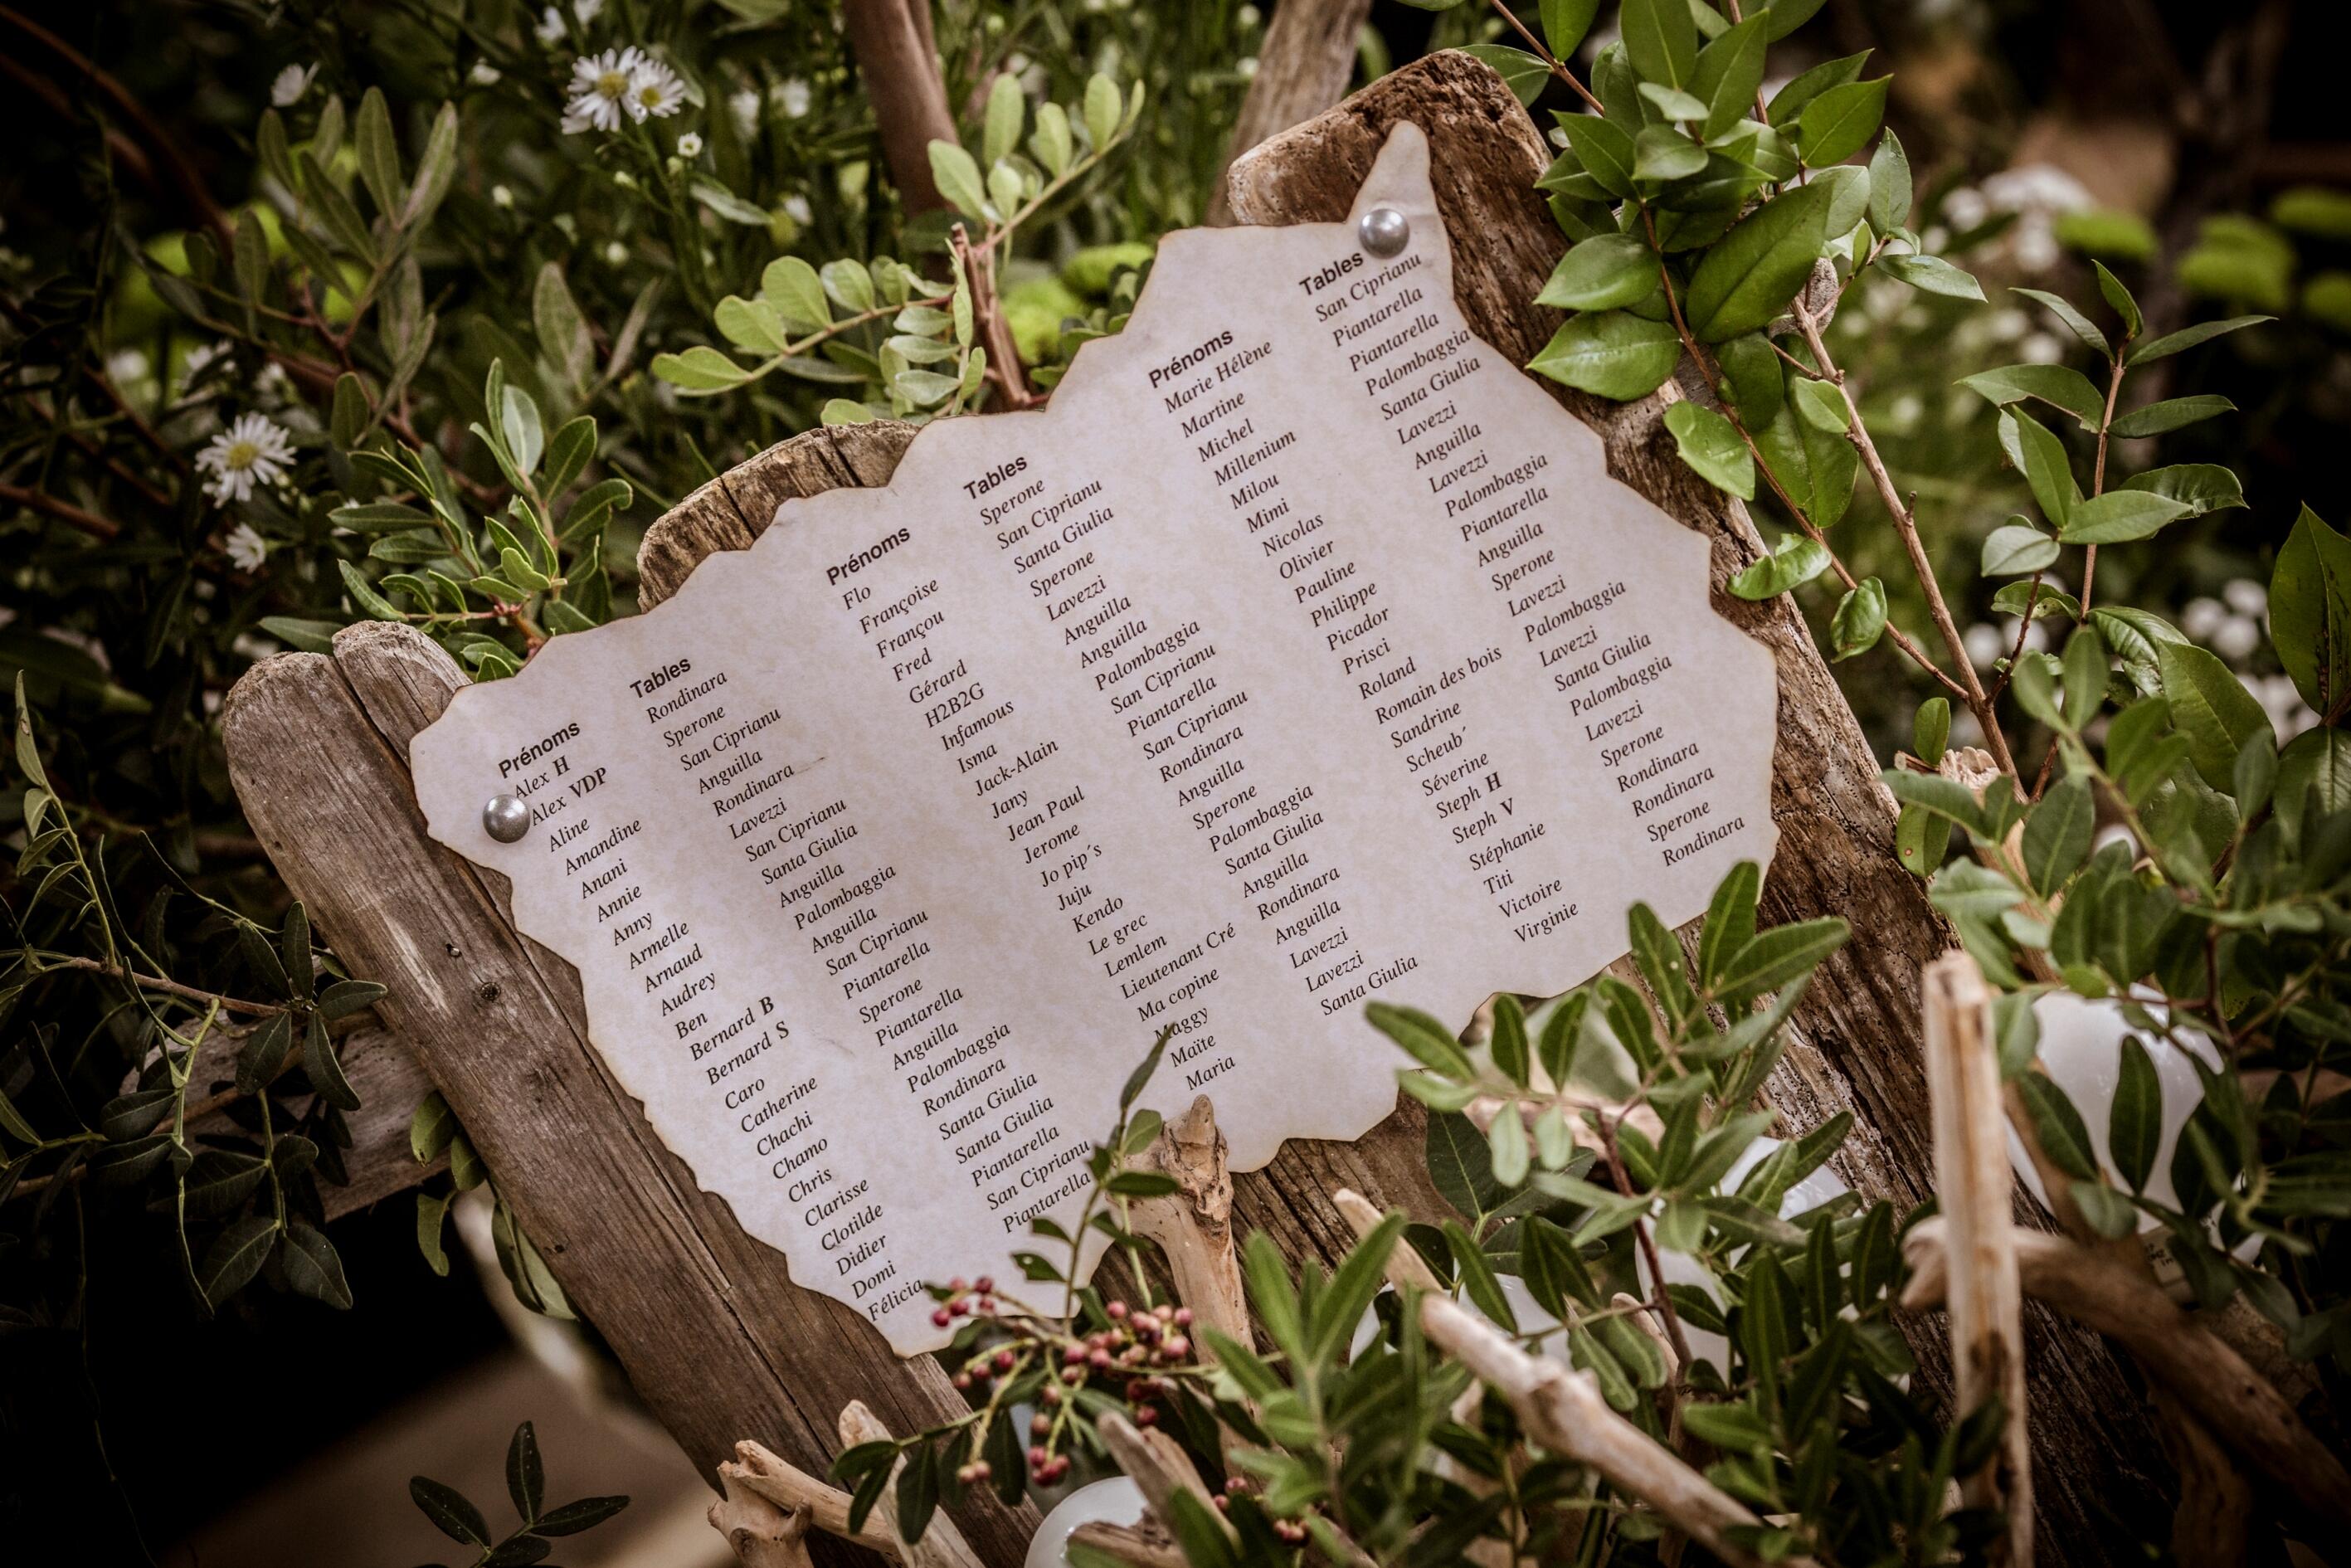 Prénoms Tables
Alex H Rondinara
Alex VDP Sperone
Aline San Ciprianu
Amandine Anguilla
Anani Rondinara
Annie Lavezzi
Anny San Ciprianu
Armelle Santa Giulia
Arnaud Anguilla
Audrey Palombaggia
Ben Anguilla
Bernard B San Ciprianu
Bernard S Piantarella
Caro Sperone
Catherine Piantarella
Chachi Anguilla
Chamo Palombaggia
Chris Rondinara
Clarisse Santa Giulia
Clotilde Santa Giulia
Didier Piantarella
Domi San Ciprianu
Félicia Piantarella
Prénoms Tables
Flo Sperone
Françoise San Ciprianu
Françou Santa Giulia
Fred Sperone
Gérard Lavezzi
H2B2G Anguilla
Infamous Anguilla
Isma Palombaggia
Jack-Alain San Ciprianu
Jany Piantarella
Jean Paul San Ciprianu
Jerome Rondinara
Jo pip´s Anguilla
Juju Sperone
Kendo Palombaggia
Le grec Santa Giulia
Lemlem Anguilla
Lieutenant Cré Rondinara
Ma copine Anguilla
Maggy Lavezzi
Maïte Lavezzi
Maria Santa Giulia
Prénoms Tables
Marie Hélène San Ciprianu
Martine Piantarella
Michel Piantarella
Millenium Palombaggia
Milou Santa Giulia
Mimi Lavezzi
Nicolas Anguilla
Olivier Lavezzi
Pauline Palombaggia
Philippe Piantarella
Picador Anguilla
Prisci Sperone
Roland Lavezzi
Romain des bois Palombaggia
Sandrine Lavezzi
Scheub´ Santa Giulia
Séverine Palombaggia
Steph H Lavezzi
Steph V Sperone
Stéphanie Rondinara
Titi Rondinara
Victoire Sperone
Virginie Rondinara